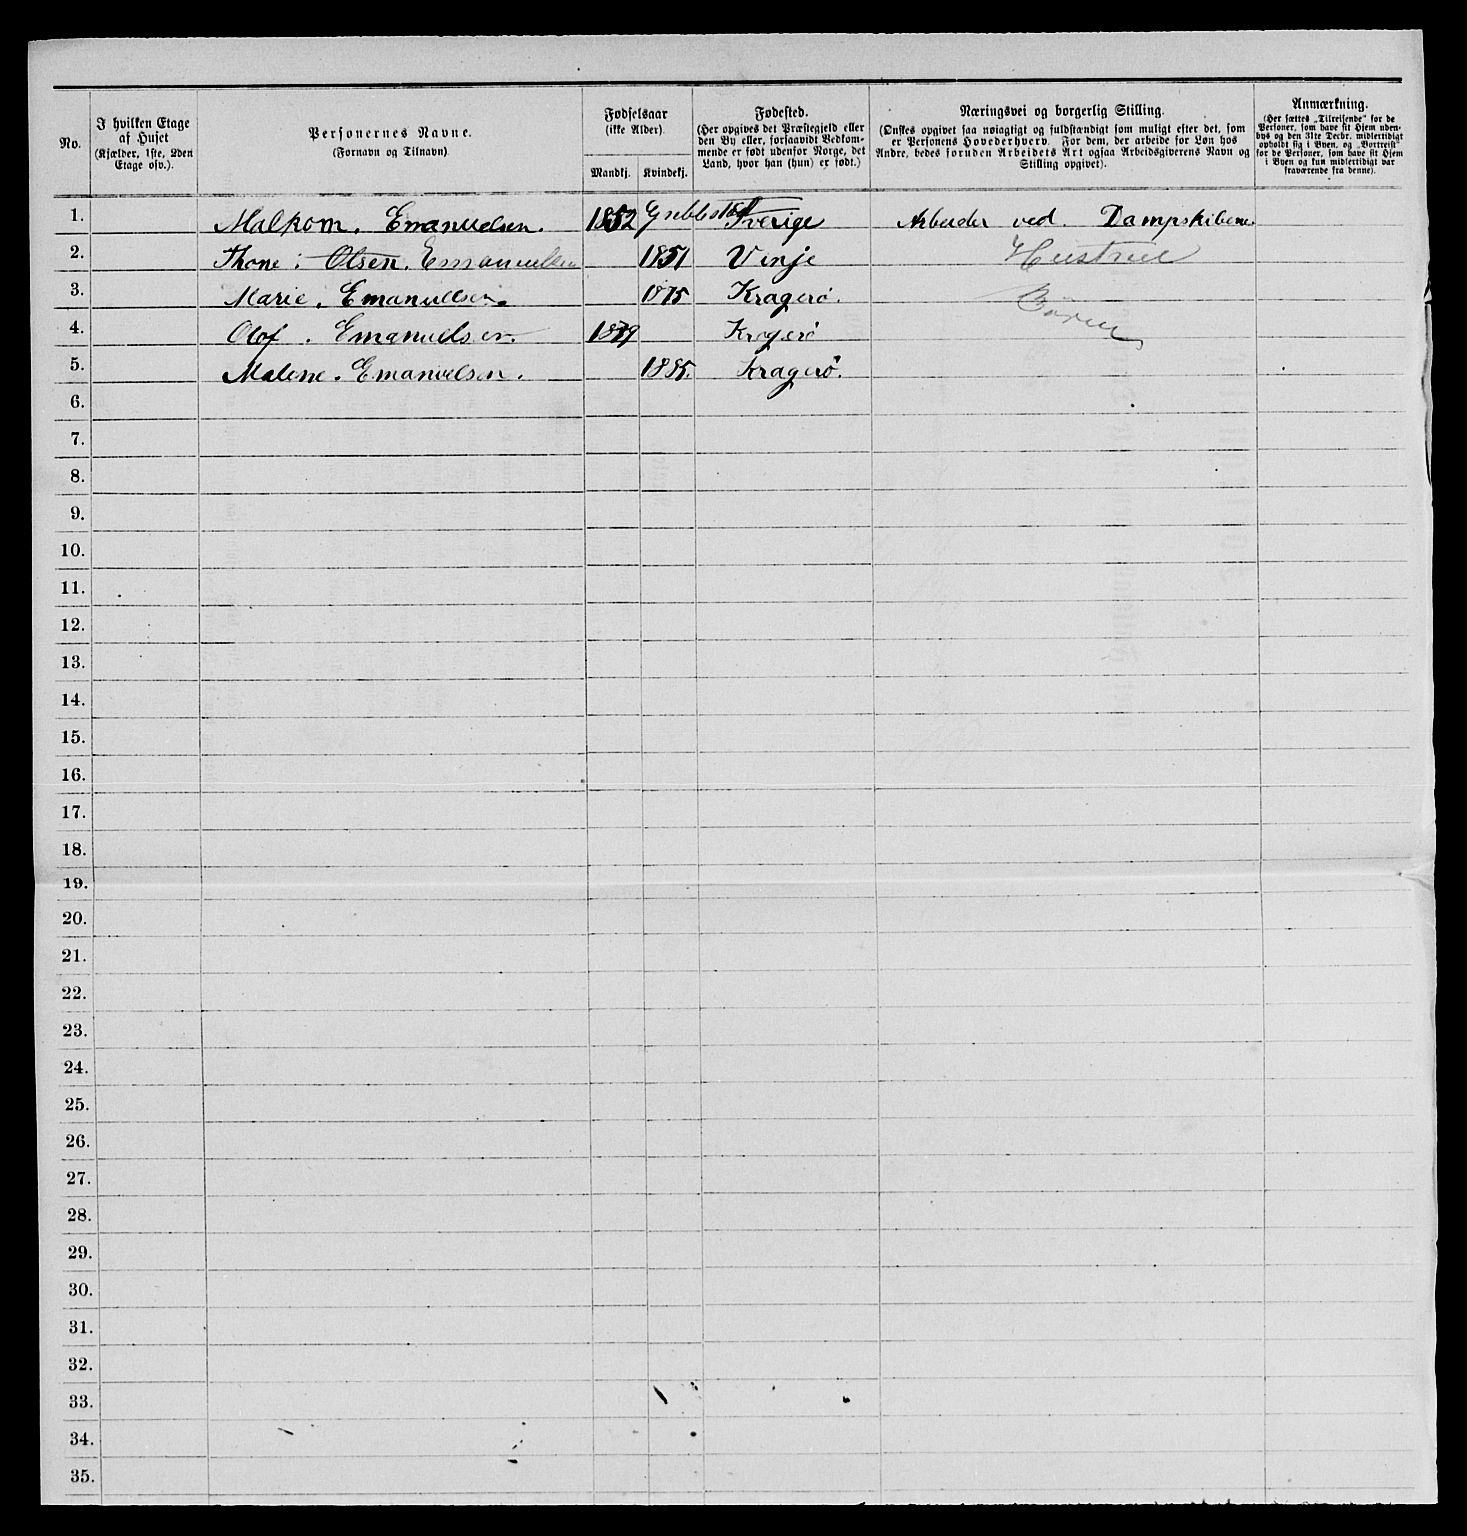 No.
I hvilken Etage af Huset
(Kjælder, 1ste, 2den Etage osv.).
Personernes Navne.
(Fornavn og Tilnavn).
Fødselsaar
(ikke Alder).
Mandkj. Kvindekj.
Fødested.
(Her opgives det Præstegjeld eller
den By eller, forsaavidt Vedkom-
mende er født udenfor Norge, det
Land, hvor han (hun) er født.)
Næringsvei og borgerlig Stilling.
(Ønskes opgivet saa nøiagtigt og fuldstændigt som muligt efter det, som
er Personens Hovederhverv. For dem, der arbeide for Løn hos
Andre, bedes foruden Arbeidets Art ogsaa Arbeidsgiverens Navn og
Stilling opgivet).
Anmærkning.
(Her sættes „Tilreisende“ for de
Personer, som have sit Hjem uden-
bys og den 31te Decbr. midlertidigt
opholdt sig i Byen, og „Bortreist“
for de Personer, som have sit Hjem
i Byen og kun midlertidigt var
fraværende fra denne).
1. Malkom. Emanuelsen. 1852 Grebbestad Sverige Arbeider ved. Dampskibene
2. Thone: Olsen. Emanuelsen 1851 Vinje Hustrue
3. Marie. Emanuelsen. 1875 Kragerø. Børn
4. Olof. Emanuelsen. 1879 Kragerø
5. Malene. Emanuelsen. 1885. Kragerø.
6.
7.
8.
9.
10.
11.
12.
13.
14.
15.
16.
17.
18.
19.
20.
21.
22.
23.
24.
25.
26.
27.
28.
29.
30.
31.
32.
33.
34.
35.